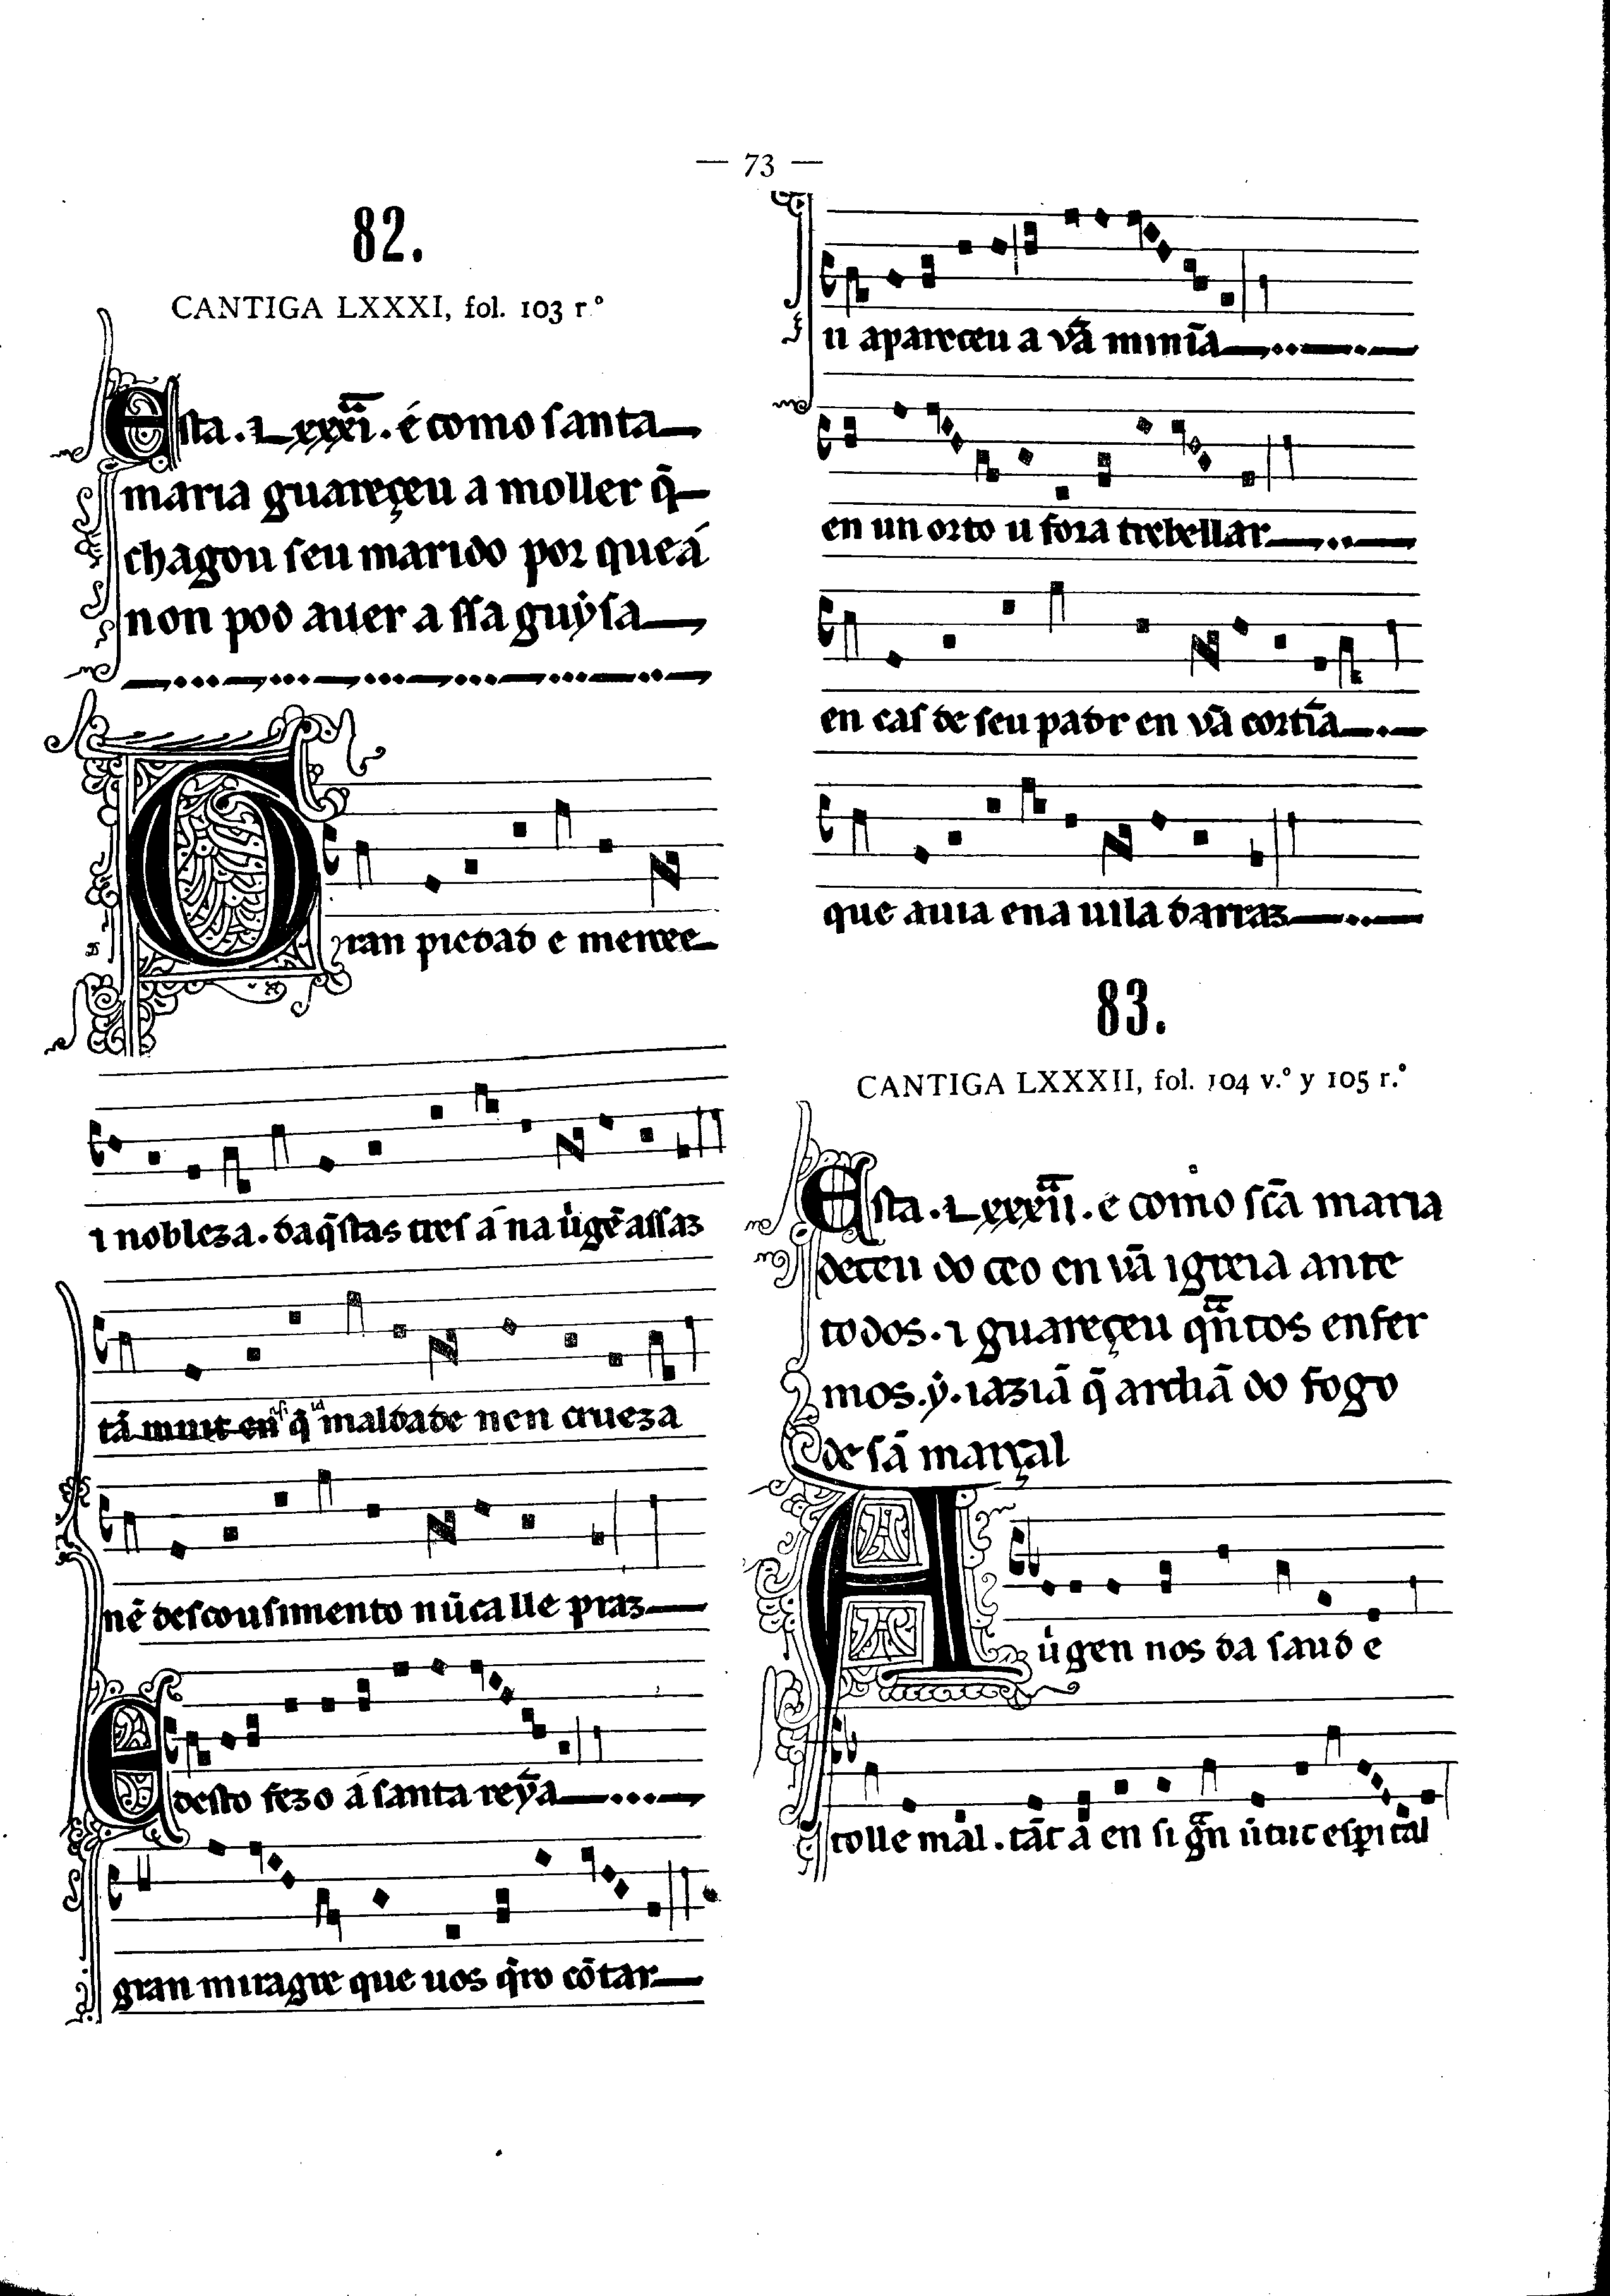 — 73 —
82.
CANTIGA LXXXI, fol. 103 r.º
Esta . Lxxxi̅ . é como ſanta
maria guareçeu a moller q̄
chagou ſeu marido por queá
non pod auer a ſſa guyſa
Gran piedad e mercee
ı nobleza . daq̄ſtas tres á na uírgē aſſaz
tā muit en q̄ maldade nen crueza
nē deſcouſimento nūca lle praz
E deſto fezo á ſanta reỹa
gran miragre que uos q̄ro cōtar
u apareceu a vā minīa
en un orto u fora trebellar
en cas de ſeu padr en vā cortīa
que auia ena uila darraz
83.
CANTIGA LXXXII, fol. 104 v.º y 105 r.º
Esta . Lxxxii̅ . e como ſcā maria
deceu do ceo en vā igreia ante
todos . ı guareçeu qn̄tos enfer
mos . ẏ . iaziā q̄ ardiā do fogo
de ſā marçal
A uírgen nos da ſaud e
tolle mal . tāt á en ſi grn̄ uírtut eſpıtal